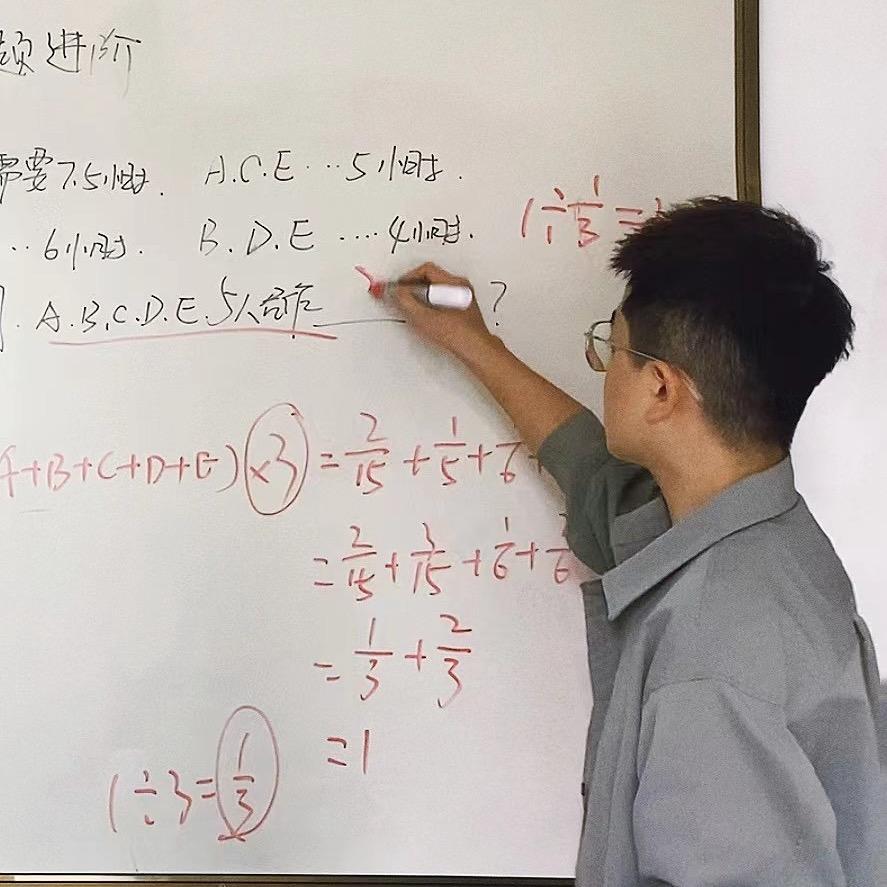 题进阶
需要7.5小时. A.C.E…5小时.
…6小时. B.D.E….4小时.
1÷1/3=
. A.B.C.D.E.5人合作______?
A+B+C+D+E)×3=2/15+1/5+1/6+
=2/15+3/15+1/6+/6
=1/3+2/3
=1
1÷3=1/3